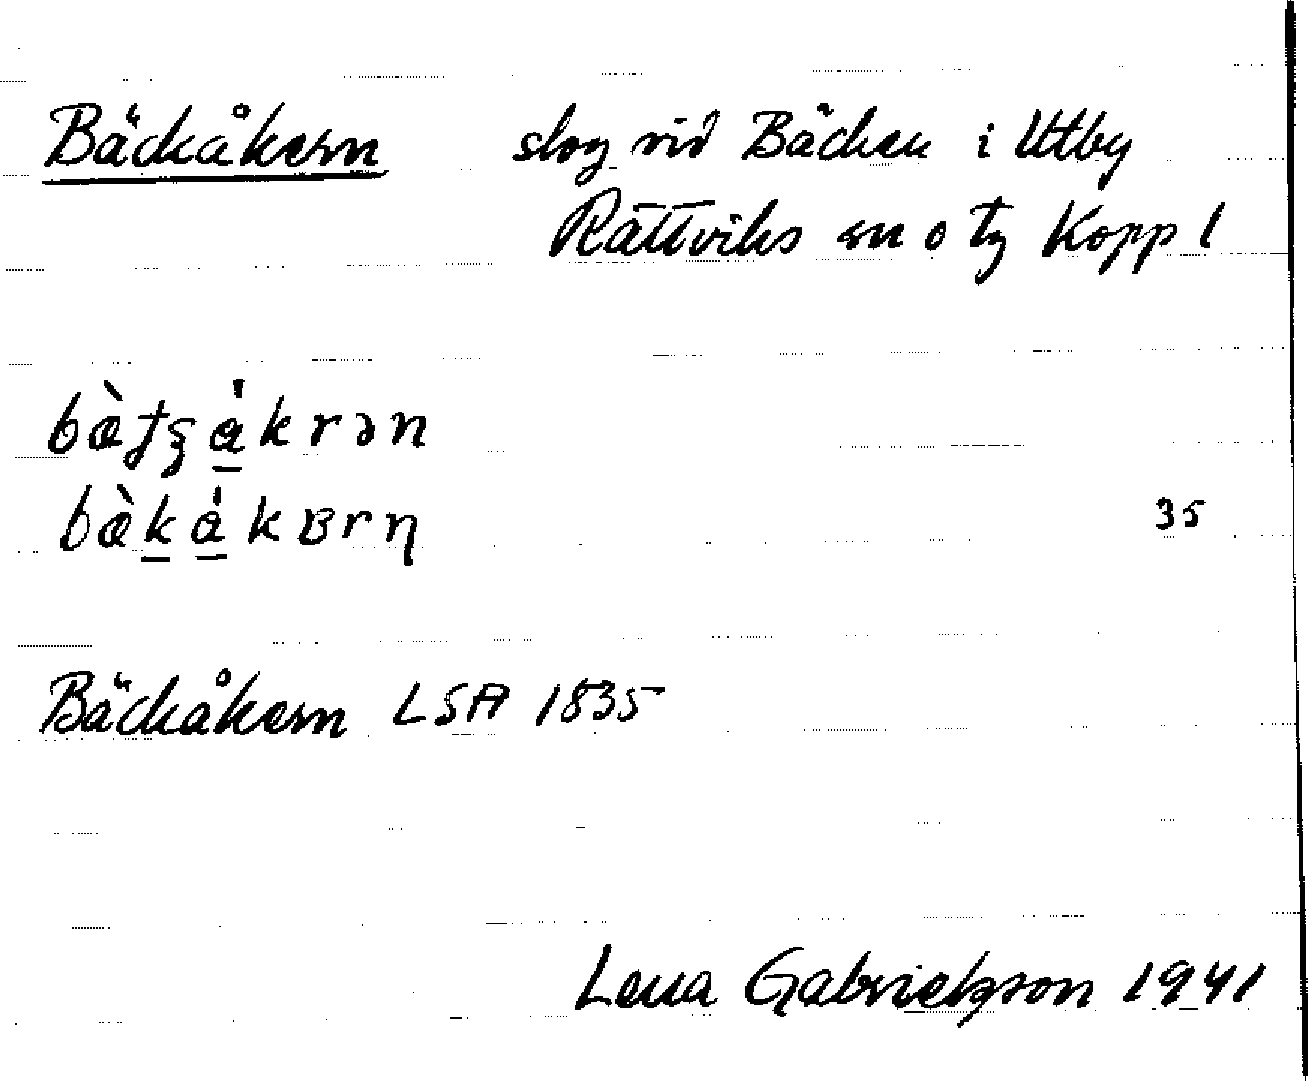 Bäckåkern slog vid Bäcken i Utby
Rättviks sn o tg Kopp l
bæ̀ʈʂa̲̍krən
bæ̀k̲a̲̍kʙrƞ
35
Bäckåkern LSA 1835
Lena Gabrielsson 1941